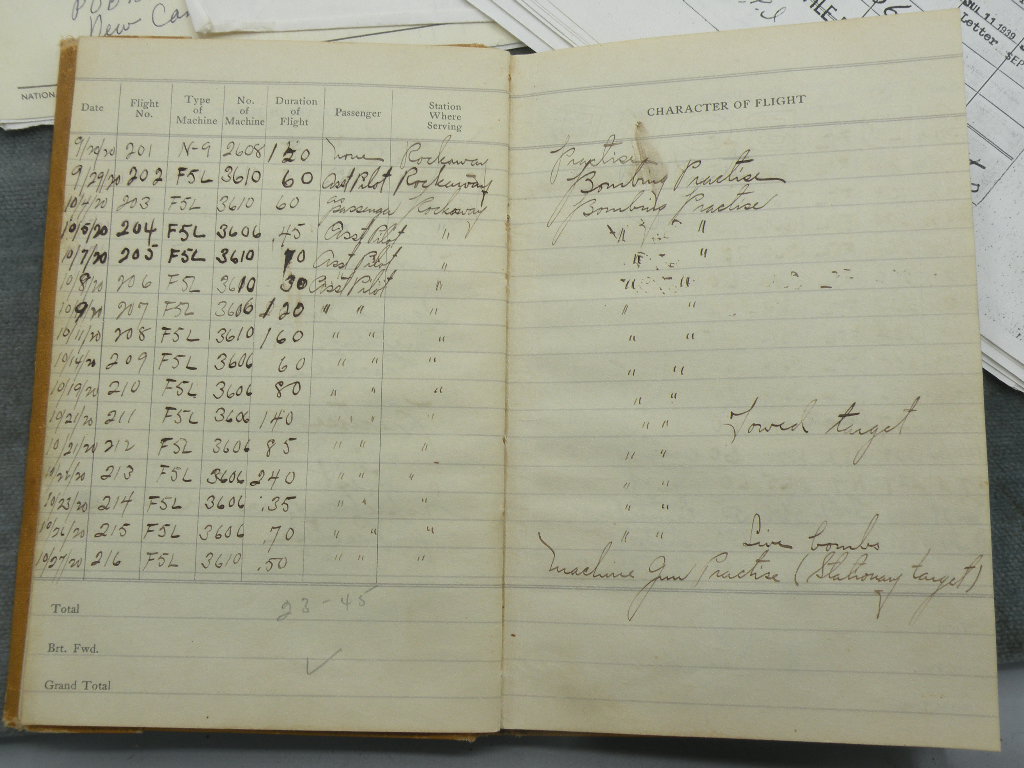 New Can
NATION
JUL 11 1939
Letter
SEP
Date Flight No. Type of Machine No. of Machine Duration of Flight Passenger Station Where Serving CHARACTER OF FLIGHT
9/29/20 201 N-9 2608 120 None Rockaway Practise
9/29/20 202 F5L 3610 60 Asst Pilot Rockaway Bombing Practise
10/4/20 203 F5L 3610 60 Passenger Rockaway Bombing Practise
10/5/20 204 F5L 3606 .45 Asst Pilot " " "
10/7/20 205 F5L 3610 70 Asst Pilot " " "
10/8/20 206 F5L 3610 30 Asst Pilot " " "
10/9/20 207 F5L 3606 120 " " " " "
10/11/20 208 F5L 3610 160 " " " " "
10/14/20 209 F5L 3606 60 " " " " "
10/19/20 210 F5L 3606 80 " " " " "
10/21/20 211 F5L 3606 140 " " " " " Towed target
10/21/20 212 F5L 3606 85 " " " " "
10/22/20 213 F5L 3606 240 " " " " "
10/23/20 214 F5L 3606 .35 " " " " "
10/26/20 215 F5L 3606 .70 " " " " " Live bombs
10/27/20 216 F5L 3610 .50 " " " Machine Gun Practise (Stationary target)
Total 23-45
Brt. Fwd.
Grand Total